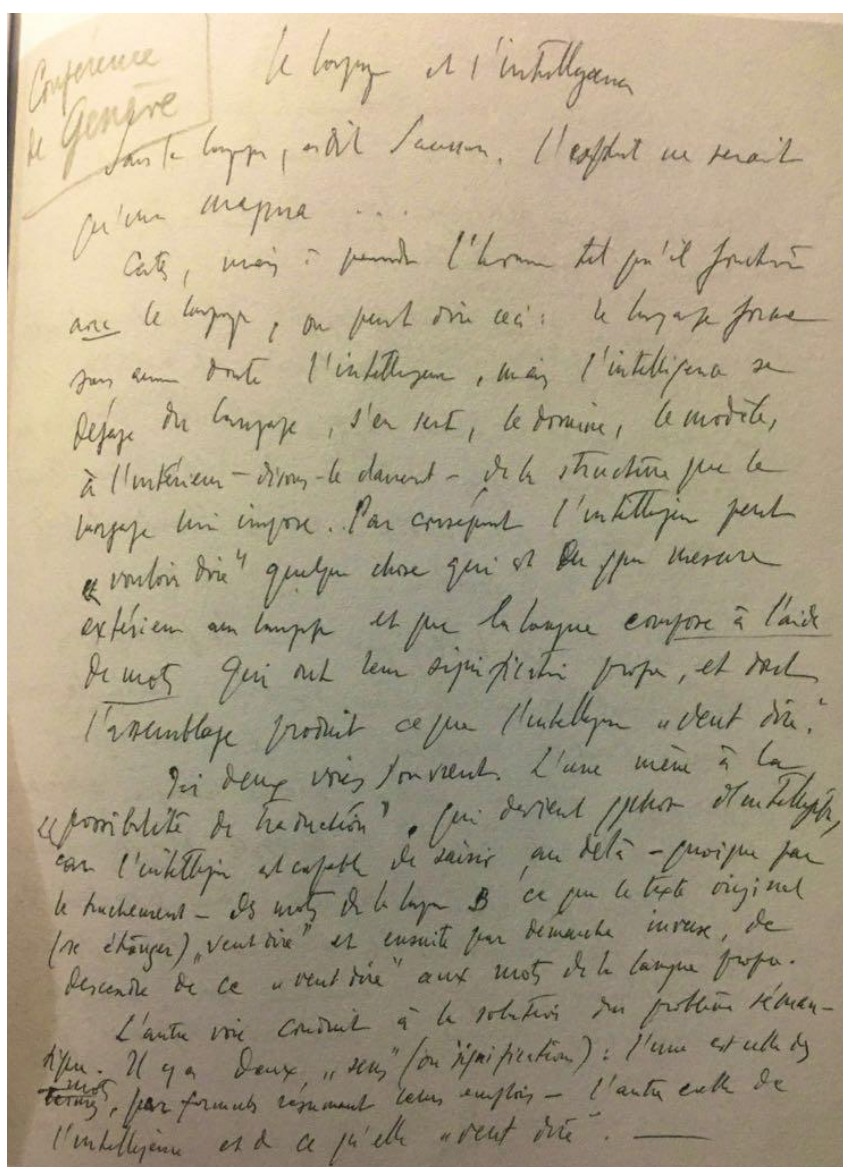 Conférence
de Genève
Le langage et l'intelligence
Sans le langage, a dit Saussure, l'esprit ne serait
qu'un magma ...
Certes, mais à prendre l'homme tel qu'il fonctionne
avec le langage, on peut dire ceci : le langage forme
sans aucun doute l'intelligence, mais l'intelligence se
dégage du langage, s'en sert, le domine, le modèle,
à l'intérieur – disons-le clairement – de la structure que le
langage lui impose. Par conséquent l'intelligence peut
« vouloir dire » quelque chose qui est
extérieur au langage et que la langue compose à l'aide
de mots qui ont leur signification propre, et dont
l'assemblage produit ce que l'intelligence « veut dire ».
Ici deux voies s'ouvrent. L'une mène à la
« possibilité de traduction », qui devient d'intelligence,
car l'intelligence est capable de saisir, au delà – quoique par
le truchement – des mots de la langue B ce que le texte original
étranger) « veut dire » et ensuite par démarche inverse, de
descendre de ce « veut dire » aux mots de la langue propre.
L'autre voie conduit à la solution du problème séman-
tique. Il y a deux « sens » (ou significations) : l'une est celle des
termes mots, par formules résumant leurs emplois – l'autre celle de
l'intelligence et de ce qu'elle « veut dire ». —